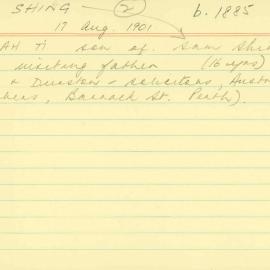 SHING — 2 b. 1885
17 Aug. 1901
AH TI son of Sam Shi
visiting father (16 yrs)
& - solicitors, Aust
, Barrack St. Perth).